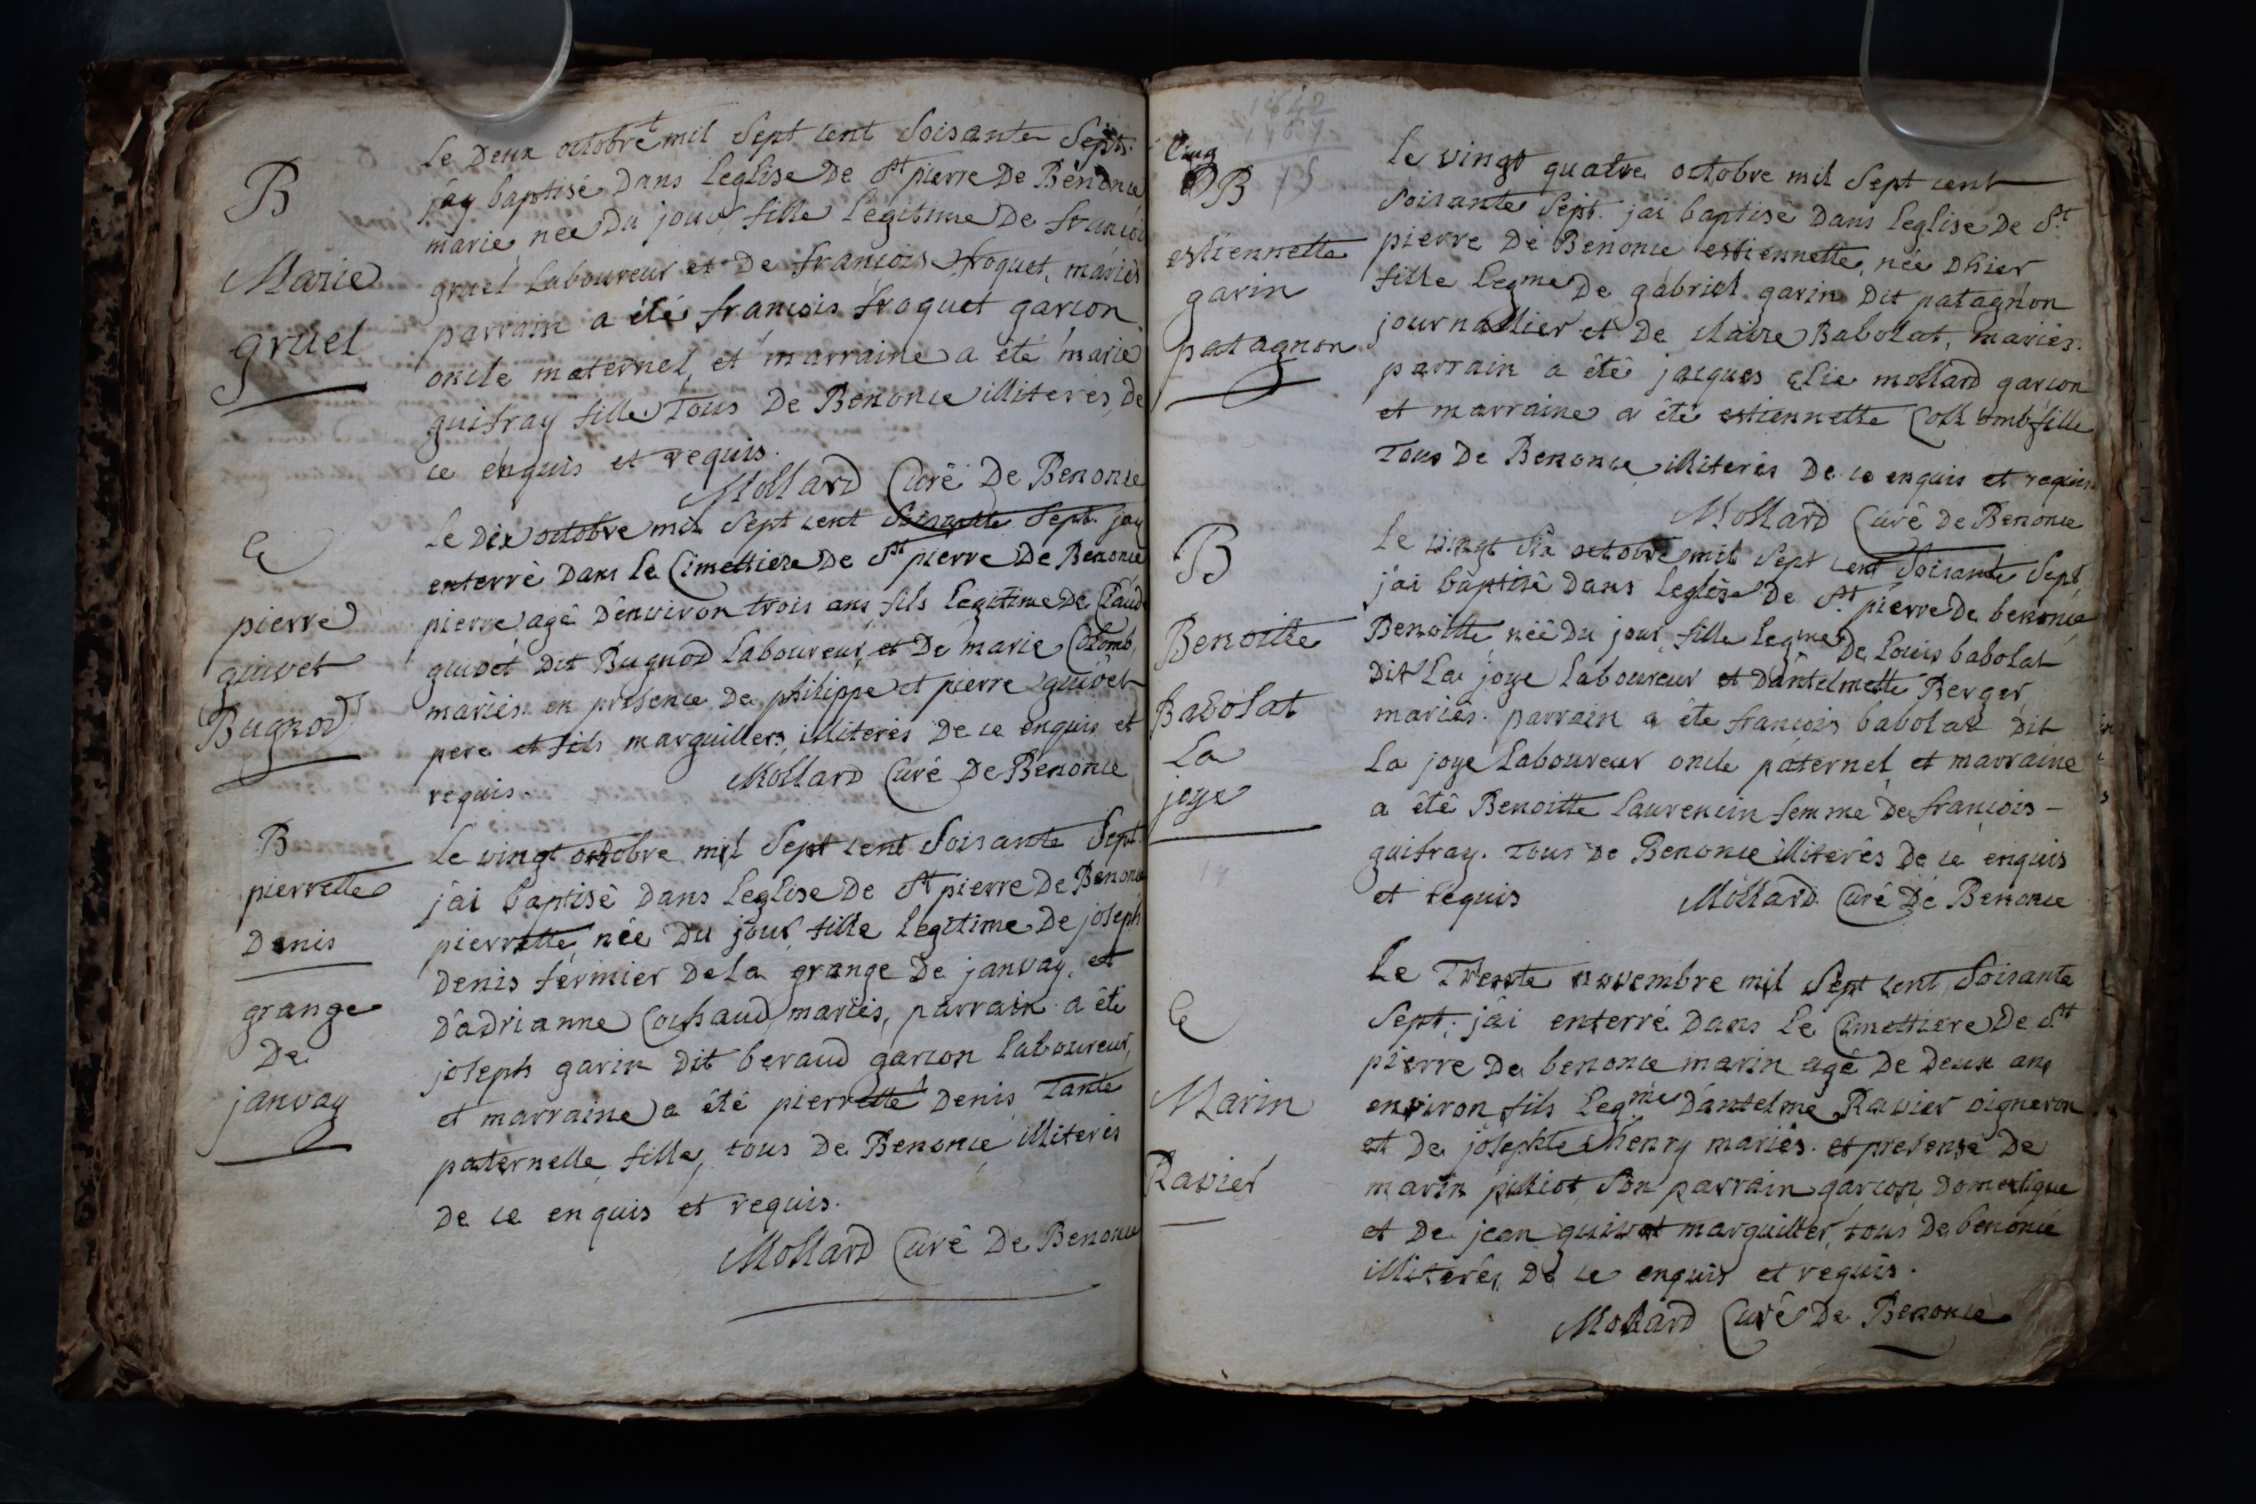 B
Marie
gruel
le Deux octobre mil Sept cent Soisante Sept.
jay baptisé Dans Leglise De St pierre De Benonce
marie, née Du jour, fille Legitime De francoi
gruel Laboureur et De francoise froquet, mariés
parrain a été francois froquet garcon
oncle maternel, et marraine a été marie
guifray fille Tous De Benonce illiteres, De
ce enquis et requis.
Mollard Curé De Benonce
e
pierre
guivet
Bugnod
le Dix octobre mil Sept cent Soisante Sept. jay
enterré Dans le Cimettiere De St pierre De Benonce
pierre agé D'environ trois ans, fils Legitime De Claud
guivet Dit Bugnod Laboureur, et De marie Colomb,
mariés. en presence De philippe et pierre guivet
pere et fils marguillers, illiterés De ce enquis et
requis.
Mollard Curé De Benonce
B
pierrette
Denis
grange
De
janvay
le vingt octobre mil Sept cent Soisante Sept.
j'ai baptisé Dans Leglise De St pierre De Benonce
pierrette, née Du jour, fille Legitime De joseph
Denis fermier De la grange De janvay, et
D'adrianne Cochaud mariés, parrain a été
joseph garin Dit beraud garcon laboureur,
et marraine a été pierrette Denis Tante
paternelle, fille, tous De Benonce illiterés
De ce enquis et requis.
Mollard Curé De Benonce
Cinq
B 75
estiennette
garin
patagnon
le vingt quatre octobre mil Sept cent
Soisante Sept. jai baptisé Dans Leglise De St
pierre De Benonce estiennette, née Dhier
fille Legme De gabriel garin Dit patagnon
journallier et De claire Babolat, mariés.
parrain a été jacques elie mollard garcon
et marraine a été estiennette Collomb fille
Tous De Benonce, illiterés De ce enquis et requis.
Mollard Curé De Benonce
B
Benoitte
Babolat
La
joye
le vingt Six octobre mil Sept cent Soisante Sept
j'ai baptisé Dans Leglise De St pierre De benonce
Benoitte, née Du jour, fille Legme De Louis babolat
Dit La joye laboureur et D'antelmette Berger,
mariés. parrain a été francois babolat Dit
La joye Laboureur oncle paternel, et marraine
a été Benoitte laurencin femme De francois –
guifray. Tous De Benonce illiterés De ce enquis
et requis
Mollard Curé De Benonce
e
Marin
Ravier
Le Trente novembre mil Sept cent Soisante
Sept. j'ai enterré Dans Le Cimettiere De St
pierre De benonce marin agé De Deux ans
environ fils Legme D'antelme Ravier vigneron
et De josephte henry mariés. et presense De
marin pilliot, Son parrain garcon Domestique
et De jean guivet marguiller, tous De benonce
illiterés, De ce enquis et requis.
Mollard Curé De Benonce